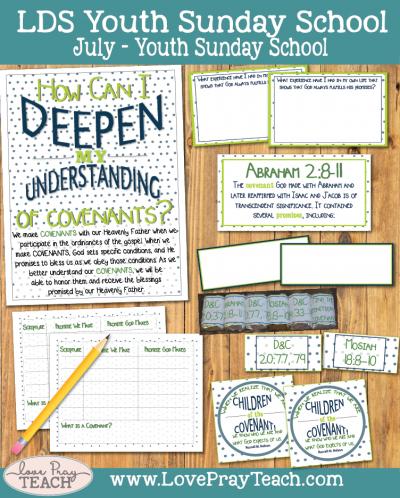 LDS Youth Sunday School
July - Youth Sunday School
How Can I
DEEPEN
MY
UNDERSTANDING
OF COVENANTS?
We make COVENANTS with our Heavenly Father when we
participate in the ordinances of the gospel. When we
make COVENANTS, God sets specific conditions, and He
promises to bless us as we obey those conditions. As we
better understand our COVENANTS, we will be
able to honor them and receive the blessings
promised by our Heavenly Father.
What experience have I had in my own life that
shows that God always fulfills his promises?
Abraham 2:8-11
The covenant God made with Abraham and
later reaffirmed with Isaac and Jacob is of
transcendent significance. It contained
several promises, including:
D&C
20:77, 79
Mosiah
18:8-10
Scripture Promise We Make Promise God Makes
What is a Covenant?
When we realize that we are
CHILDREN
of the
COVENANT,
we know who we are and
what God expects of us.
Russell M. Nelson
Love Pray
TEACH
www.LovePrayTeach.com